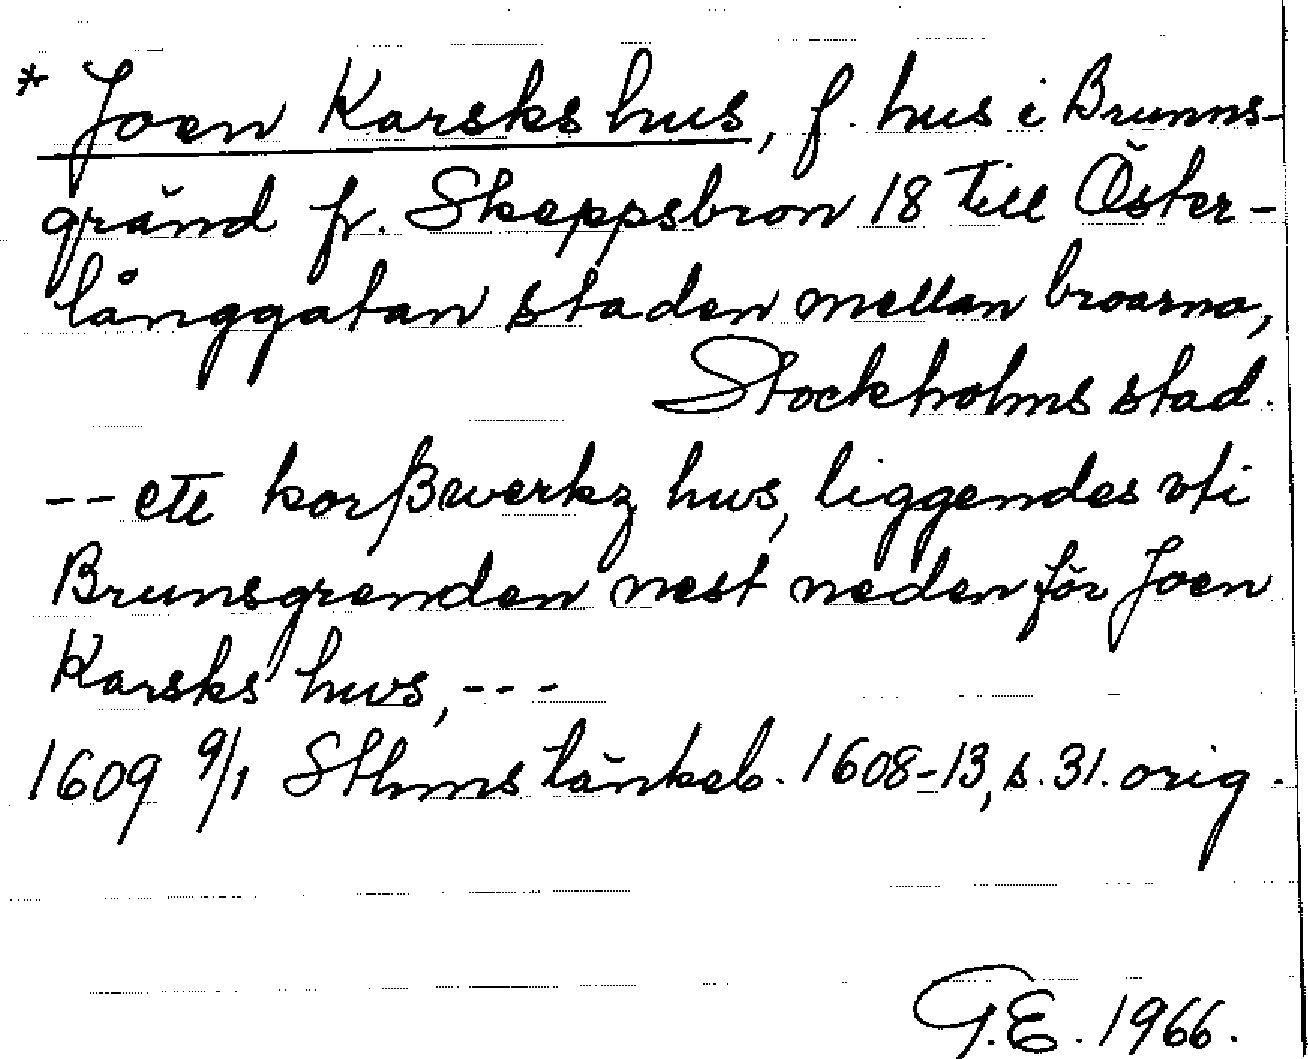 * Joen Karsks hus, f. hus i Brunns-
gränd fr. Skeppsbron 18 till Öster-
långgatan staden mellan broarna,
Stockholms stad.
-- ett korßwerkz hws, liggendes vti
Brunsgrenden nest neden för Joen
Karsks hws, ---
1609 9/1 Sthms tänkeb. 1608-13, s. 31. orig.
G.E. 1966.